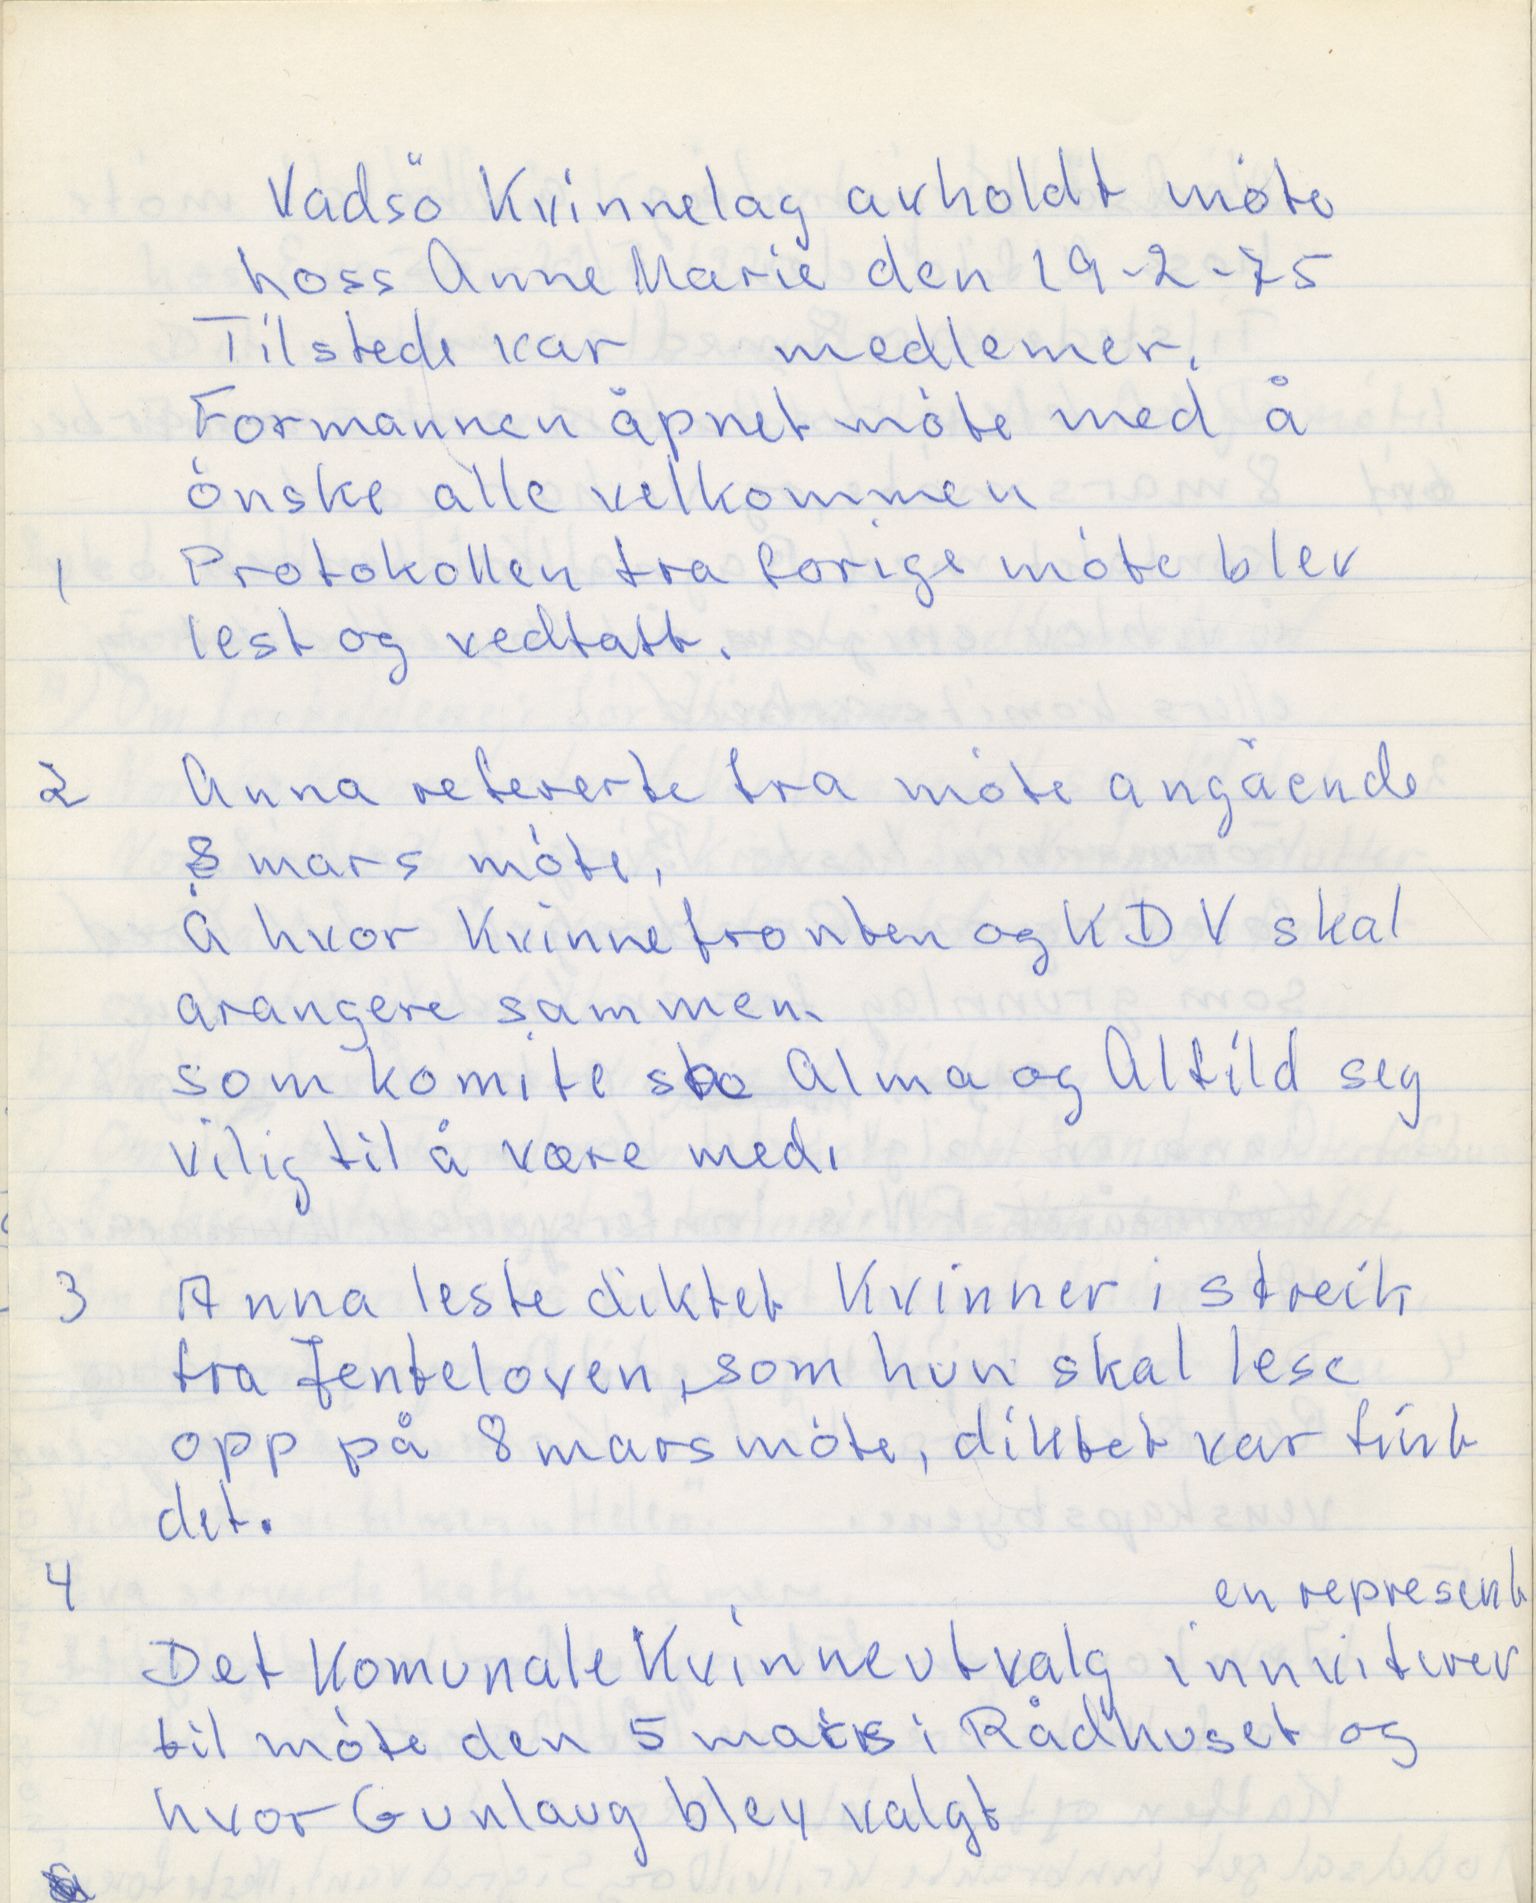 Vadsö Kvinnelag avholdt möte
hoss Anne Marie den 19-2-75
Tilstede var medlemer.
Formannen åpnet möte med å
önske alle velkommen
1 Protokollen fra forige möte blev
lest og vedtatt.
2 Anna refererte fra möte angående
8 mars möte,
Å hvor Kvinnefronten og KDV skal
arangere sammen.
som komite sto Alma og Alfild seg
vilig til å være med.
3 Anna leste diktet Kvinner i streik
fra Jenteloven, som hun skal lese
opp på 8 mars möte, diktet var fint
det.
4 en represent
Det Komunale Kvinneutvalg innviterer
til möte den 5 mars i Rådhuset og
hvor Gunlaug blev valgt